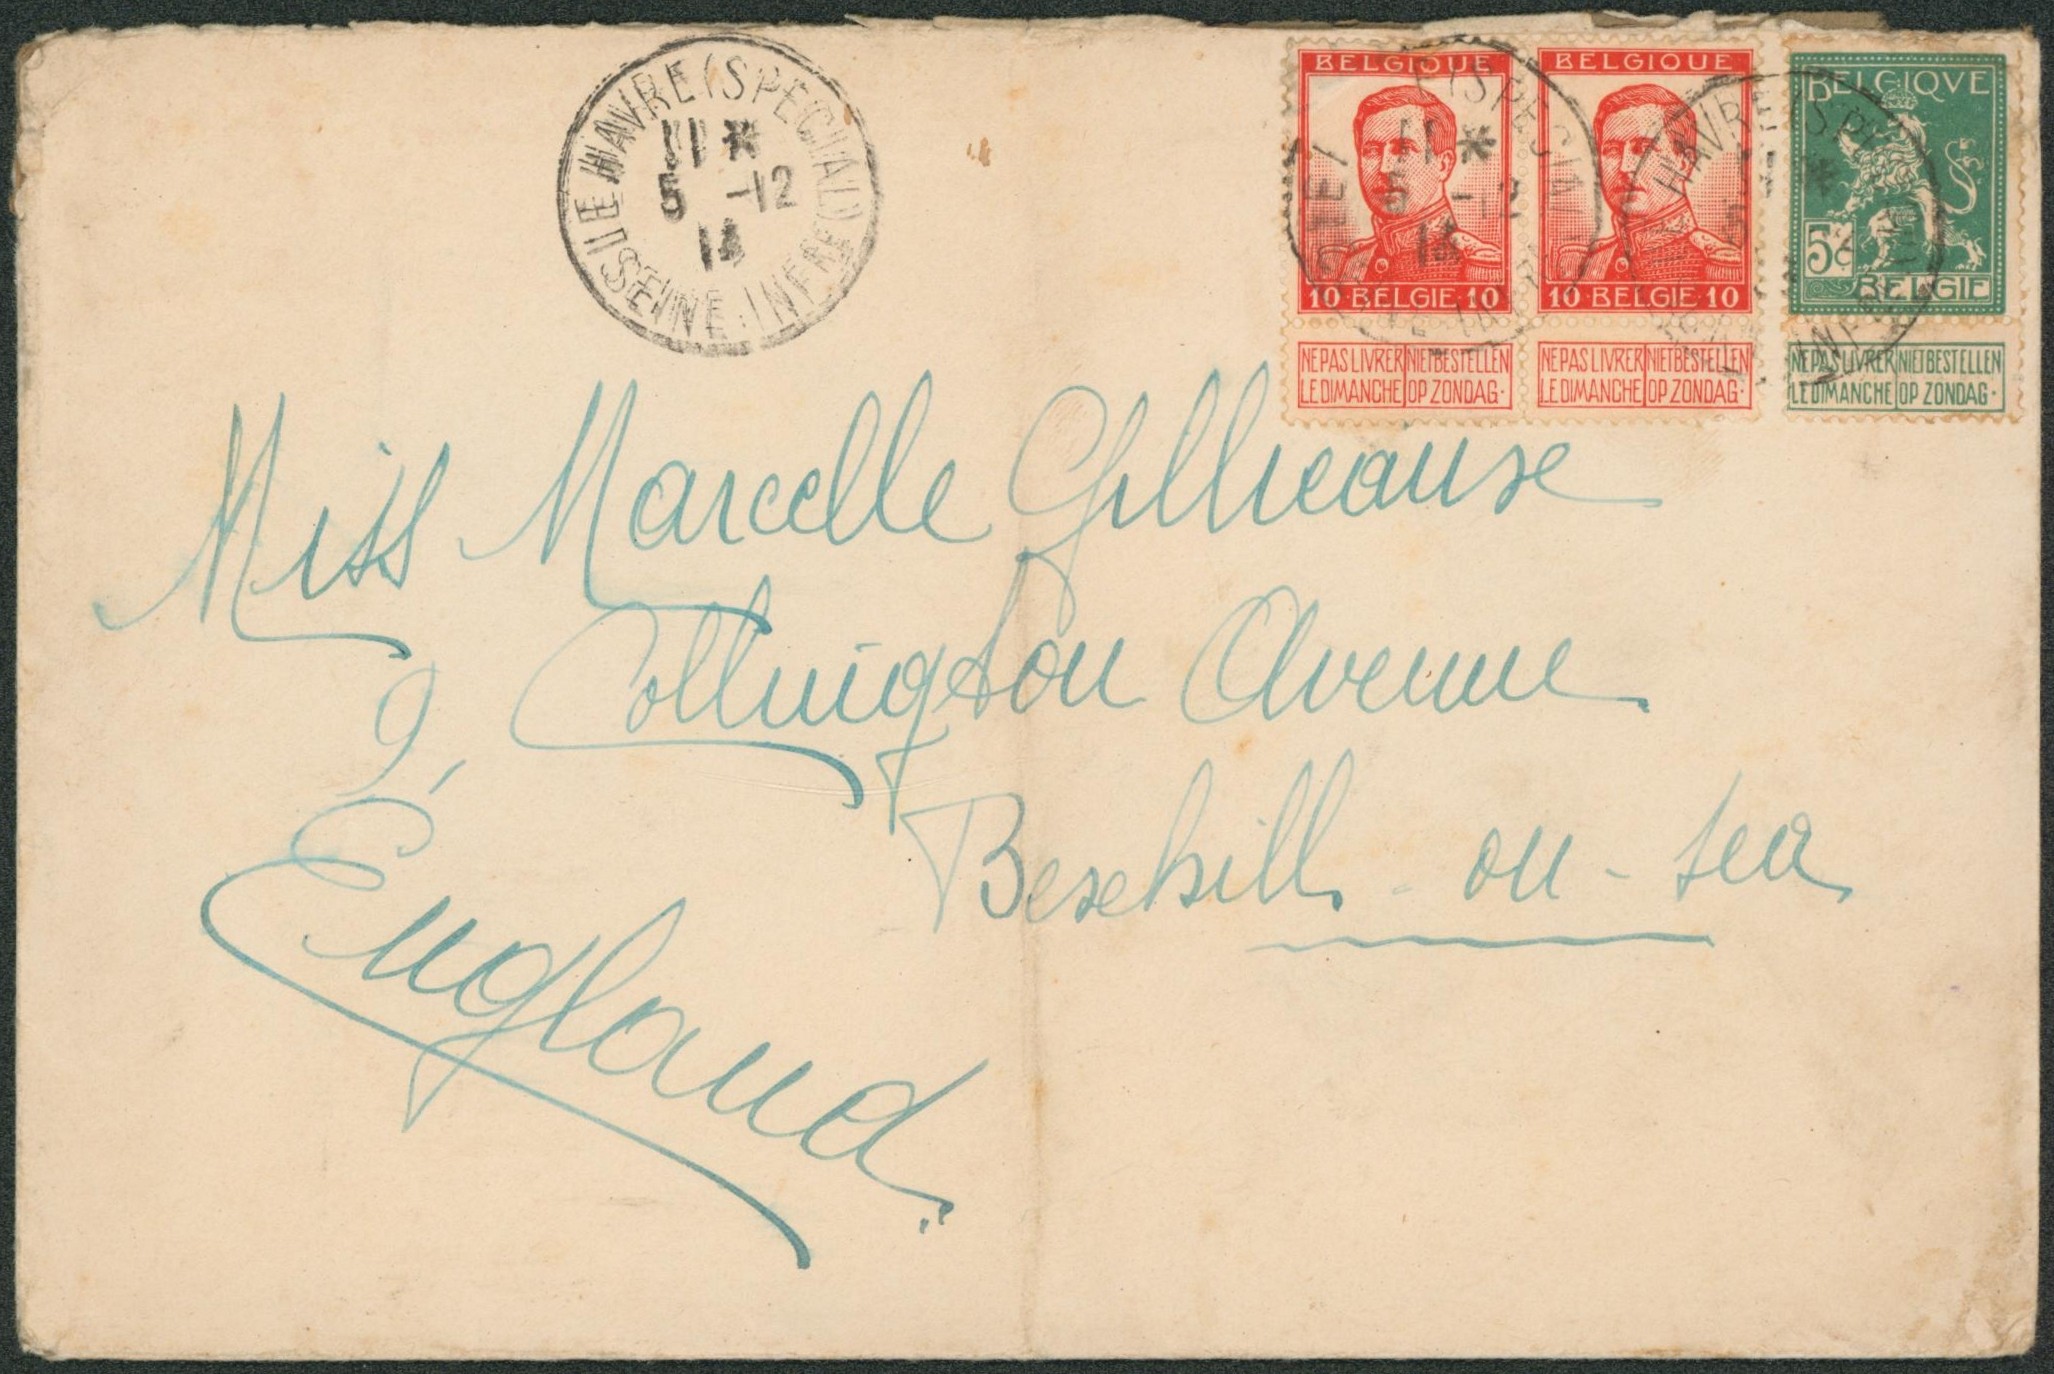 LE HAVRE (SPECIAL)
11 *
5 -12
14
SEINE-INFRE
BELGIQUE
10 BELGIE 10
NE PAS LIVRER LE DIMANCHE
NIET BESTELLEN OP ZONDAG.
BELGIQUE
10 BELGIE 10
NE PAS LIVRER LE DIMANCHE
NIET BESTELLEN OP ZONDAG.
BELGIQVE
5c
BELGIE
NE PAS LIVRER LE DIMANCHE
NIET BESTELLEN OP ZONDAG.
(SPECIAL)
11 *
5 -12
14
HAVRE (SP
Miss Marcelle
9, Collington Avenue
Bexehill-on-sea
England